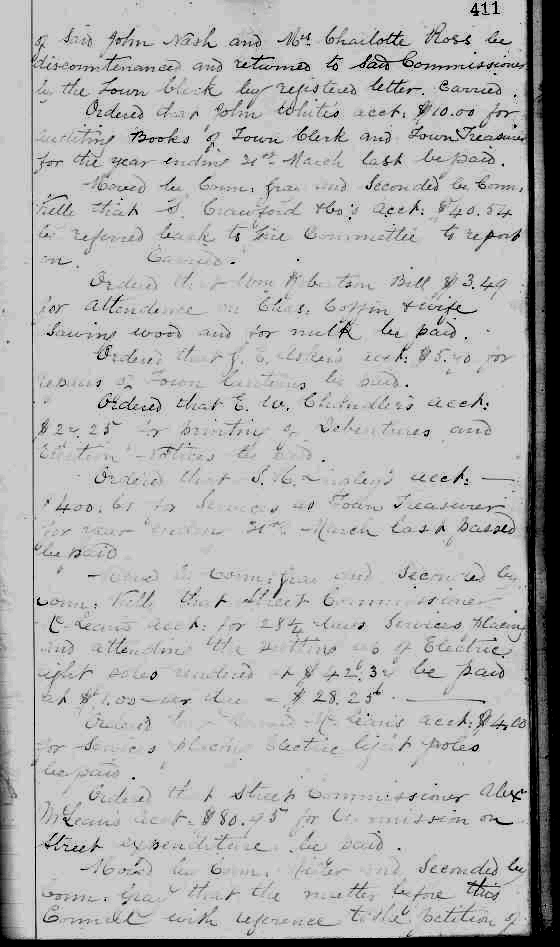 411
of said John Nash and Mrs Charlotte Ross be
discountenanced and returned to said Commissioner
by the Town Clerk by registered letter. Carried.
Ordered that John White's acct: $10.00 for
auditing Books of Town Clerk and Town Treasurer
for the year ending 31st March last be paid.
Moved by Coun: Gray and Seconded by Coun:
that S. Crawford & Co's acct: $40.54
be referred back to the Committee to report
on. Carried.
Ordered that Wm Robertson Bill $3.49
for attendence on Chas: Coffin & wife
Sawing wood and for milk be paid.
Ordered that J. E. acct: $5.40 for
repairs of Town lanterns be paid.
Ordered that E. W. Chandler's acct:
$24.25 for printing of Debentures and
Election Notices be paid.
Ordered that S. H. acct: —
$400.61 for Services as Town Treasurer
for year ending 31st March last passed
be paid
Moved by Coun: Gray and Seconded by
Coun: that Street Commissioner
McLean's acct: for 28¼ days Services placing
and attending the setting up of Electric
light poles rendered at $42.37 be paid
at $1.00 per day = $28.25. —
Ordered that McLean's acct: $4.00
for Services placing Electric light poles
be paid.
Ordered that Street Commissioner Alexr
McLean's acct $80.95 for Commission on
Street expenditure be paid.
Moved by Coun: and Seconded by
Coun: Gray that the matter before this
Council with reference to the Petition of